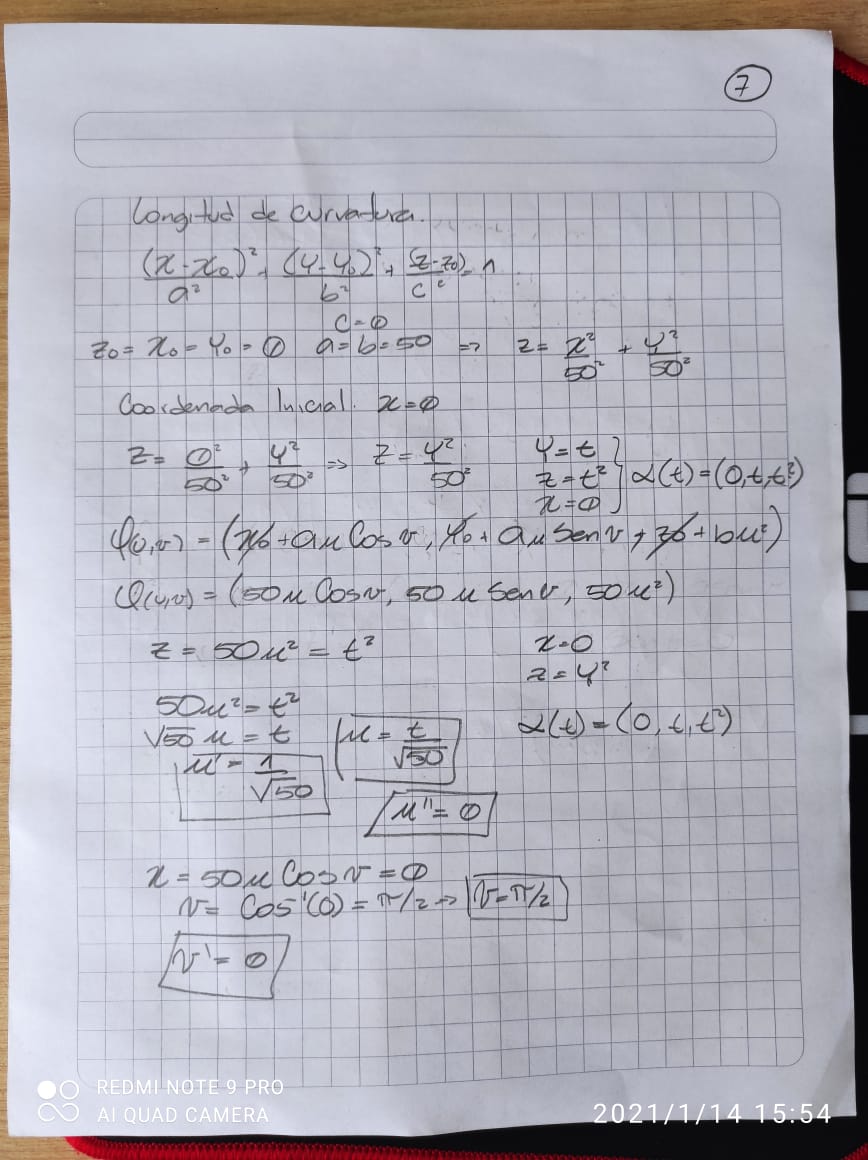 7
Longitud de curvatura.
(x-x₀)²/a² + (y-y₀)²/b² + (z-z₀)/c² = 1
c=0
z₀ = x₀ = y₀ = 0 a=b=50 => z = x²/50² + y²/50²
Coordenada Inicial. x=0
z = 0²/50² + y²/50² => z = y²/50² y=t z=t² x=0 } α(t)=(0,t,t²)
φ(u,v) = (x₀+au Cos v, y₀+ au Sen v, z₀+bu²)
φ(u,v) = (50u Cosv, 50u Senv, 50u²)
z = 50u² = t² x=0
z = y²
50u² = t²
√50 u = t u = t/√50 α(t) = (0, t, t²)
u' = 1/√50
u'' = 0
x = 50u Cos v = 0
v = Cos⁻¹(0) = π/2 => v=π/2
v' = 0
REDMI NOTE 9 PRO
AI QUAD CAMERA
2021/1/14 15:54